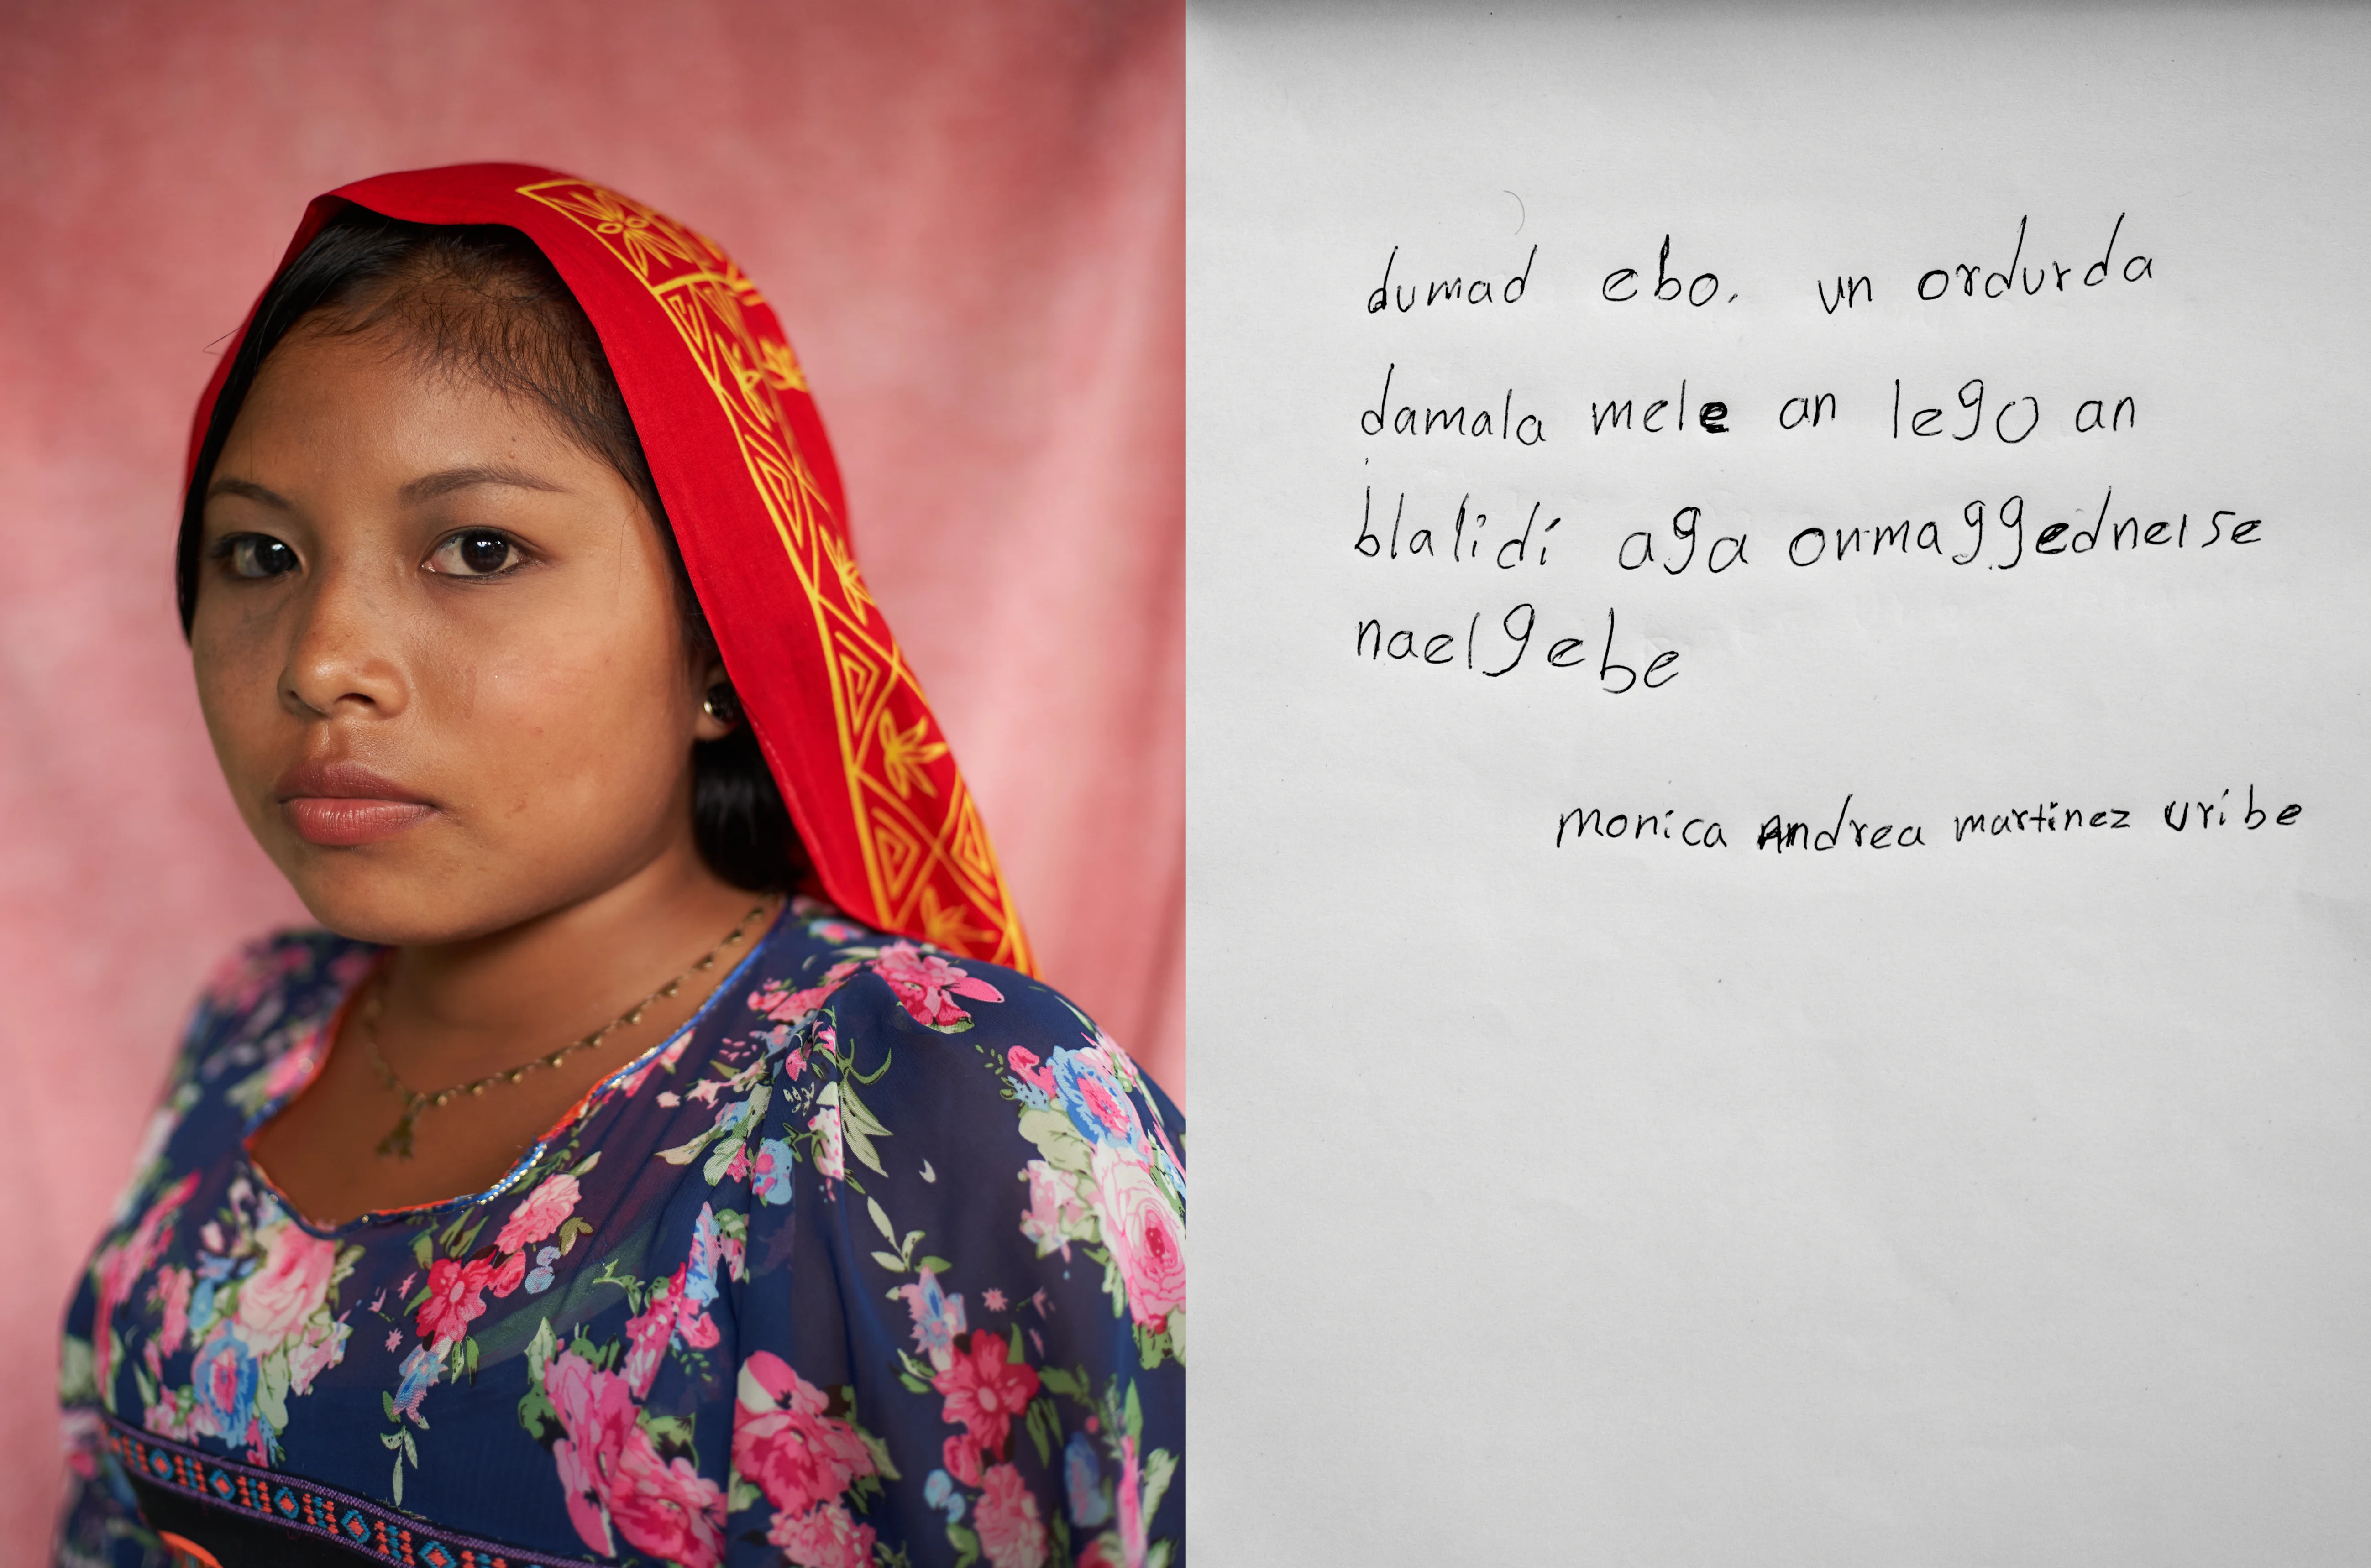 dumad ebo. un ordurda
damala mele an lego an
blalidi aga onmaggedneise
naelgebe
monica Andrea martinez uribe